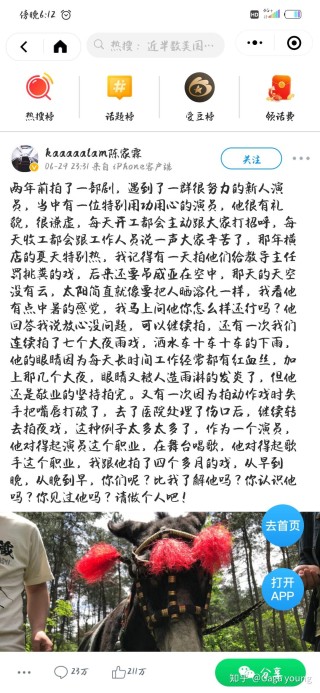 傍晚6:12
热搜：近半数美国...
热搜榜
话题榜
爱豆榜
领话费
kaaaaalam陈家霖
06-24 23:31 来自 iPhone客户端
关注
两年前拍了一部剧，遇到了一群很努力的新人演
员，当中有一位特别用功用心的演员，他很有礼
貌，很谦虚，每天开工都会主动跟大家打招呼，每
天收工都会跟工作人员说一声大家辛苦了，那年横
店的夏天特别热，我记得有一天拍他们给教导主任
罚挑粪的戏，后来还要吊威亚在空中，那天的天空
没有云，太阳简直就像要把人晒溶化一样，我看他
有点中暑的感觉，我马上问他你怎么样还行吗？他
回答我说放心没问题，可以继续拍，还有一次我们
连续拍了七个大夜雨戏，洒水车十车十车的下雨，
他的眼睛因为每天长时间工作经常都有红血丝，加
上那几个大夜，眼睛又被人造雨淋的发炎了，但他
还是敬业的坚持拍完。又有一次因为拍动作戏时失
手把嘴唇打破了，去了医院处理了伤口后，继续转
去拍夜戏，这种例子太多太多了，作为一个演员，
他对得起演员这个职业，在舞台唱歌，他对得起歌
手这个职业，我跟他拍了四个多月的戏，从早到
晚，从晚到早，你们呢？比我了解他吗？你认识他
吗？你见过他吗？请做个人吧！
去首页
打开
APP
23万
211万
分享